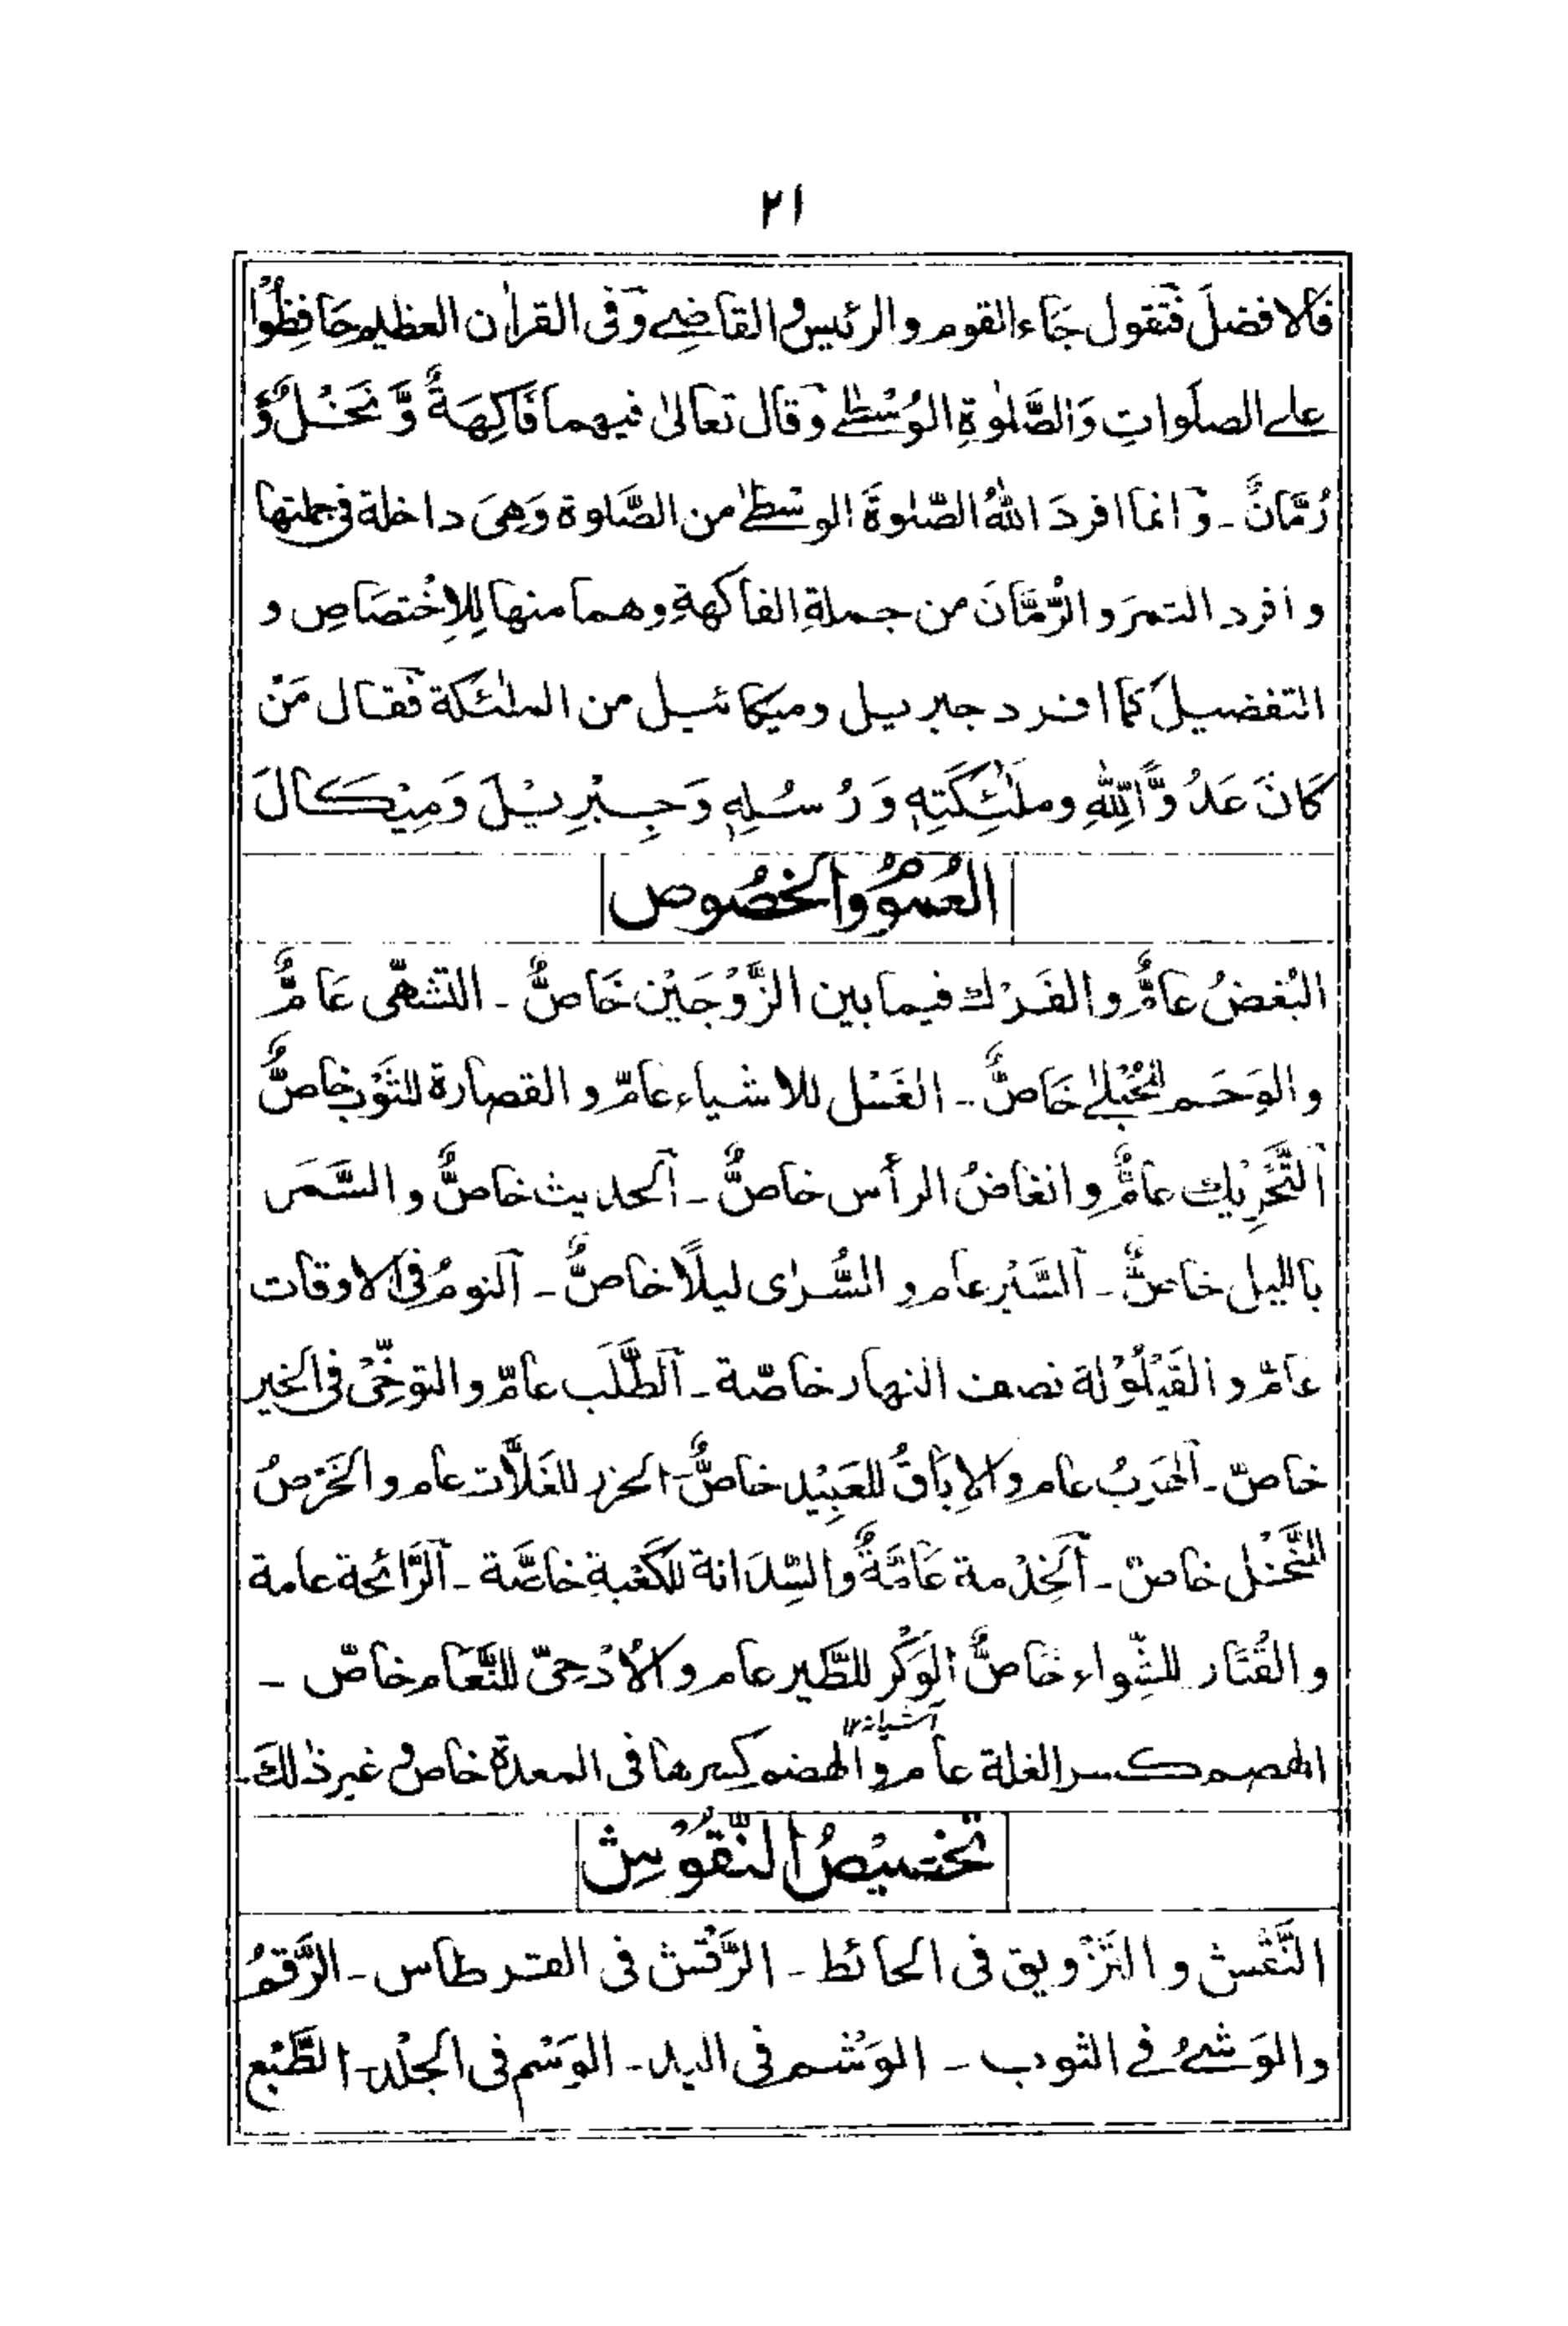 ٢١
فالافضلَ فتقول جَاء القوم والرئیس والقاضِی وفی القراٰن العظیم حَافِظُوْا
علی الصلَواتِ وَالصَّلٰوۃِ الوُسْطٰے وقال تعالیٰ فیهما فَاکِهَةٌ وَّ نَخْلٌ وَّ
رُمَّانٌ ـ وانما افردَ اللّٰهُ الصّلٰوۃَ الوسْطیٰ من الصَّلوۃ وَهیَ داخلة فی جملتها
وافرد التمرَ والرُّمَّانَ من جملةِ الفاکهةِ وهما منها لِلاِخْتصَاصِ و
التفضیلَ کما افرد جبریل ومیکائیل من الملٰئکة فقال مَنْ
کَانَ عَدُوًّا لِّلّٰهِ وملٰٓئِکَتِهٖ وَرُسُلِهٖ وَجِبْرِیْلَ وَمِیْکَالَ
العُمُوْمُ والخصُوص
البُغضُ عامٌّ والفَرْك فیما بین الزَّوْجَیْن خَاصٌّ ـ التشهّی عَامٌّ
والوَحَم للحُبْلیٰ خَاصٌّ ـ الغَسْل للاشیاء عامّ والقصارة للثَوْب خاصٌّ
اَلتَّحْرِیْك عامٌّ وانغاضُ الرأس خاصٌّ ـ اَلحدیث خاصٌّ والسَّمَر
باللیل خاصٌّ ـ اَلسَّیْر عام والسُّرٰی لیلًا خاصٌّ ـ اَلنومُ فی الاوقات
عامّ والقَیْلُوْلة نصف النهار خاصّة ـ اَلطَّلَب عامّ والتوخّیْ فی الخیر
خاصّ ـ اَلهَرَبُ عام والاِبَاقُ للعَبِیْد خاصٌّ ـ الحزر للغَلّات عام والخَرْصُ
للنَّخْل خاصّ ـ اَلخِدْمة عَامَّةٌ والسِّدَانة للکَعْبةِ خاصَّة ـ اَلرَّائحة عامة
والقُتَار للشِّواء خَاصٌّ اَلوَکْر للطَّیر عام والاُدْحِیّ للنَّعَام خاصّ ـ
آشیانه ۱۲
الهصم کسر الغلة عام والهضم کسرها فی المعدة خاص وغیر ذٰلكَ ـ
تخصیْصُ النُّقُوْشِ
النَّقْش والتَزْویق فی الحائط ـ الرَّقْش فی القرطاس ـ الرَّقمُ
والوَشْیُ فی الثوب ـ الوَشْم فی الید ـ الوَسْم فی الجلْد ـ الطَّبْع